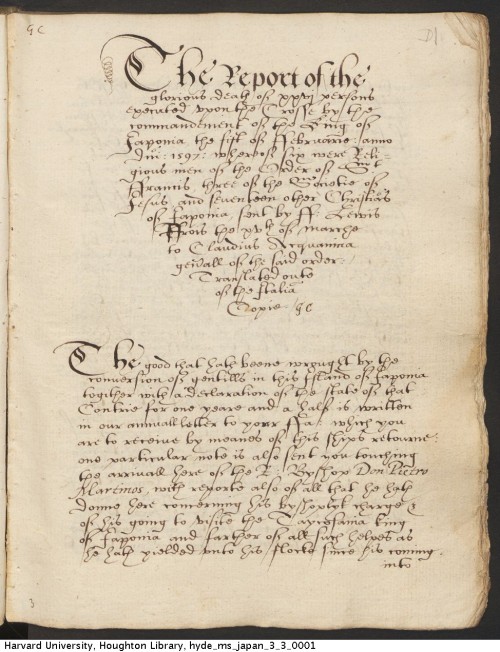 GC
D1
The Report of the
glorious death of xxvj persons
executed upon the Crosse by the
commandement of the King of
Japonia the fift of ffebruarie anno
Dni: 1597: wherof six were Reli-
gious men of the Order of Snt
ffrancis three of the Societie of
Jesus and seuenteen other Christians
of Japonia sent by ff: Lewis
ffrois the xvth of Marche
to Claudius Acquauiua
gerall of the said order:
Translated oute
of the Italia
Copie GC
The good that hath beene wrought by the
conversion of gentills in this Island of Japonia
togither with a declaration of the state of that
Contrie for one yeare and a half is written
in our annuall letter to your ffa: which you
are to receive by meanes of this ships retourne:
one particular note is also sent you touching
the arrivall here of the R: Bysshop Don Pietro
Martines, with reporte also of all that he hath
donne here concerning his bysshoplyk charge &
of his going to visite the Taycosama king
of Japponia and farther of all such helpes as
he hath yielded unto his flocke since his coming
into
3
Harvard University, Houghton Library, hyde_ms_japan_3_3_0001